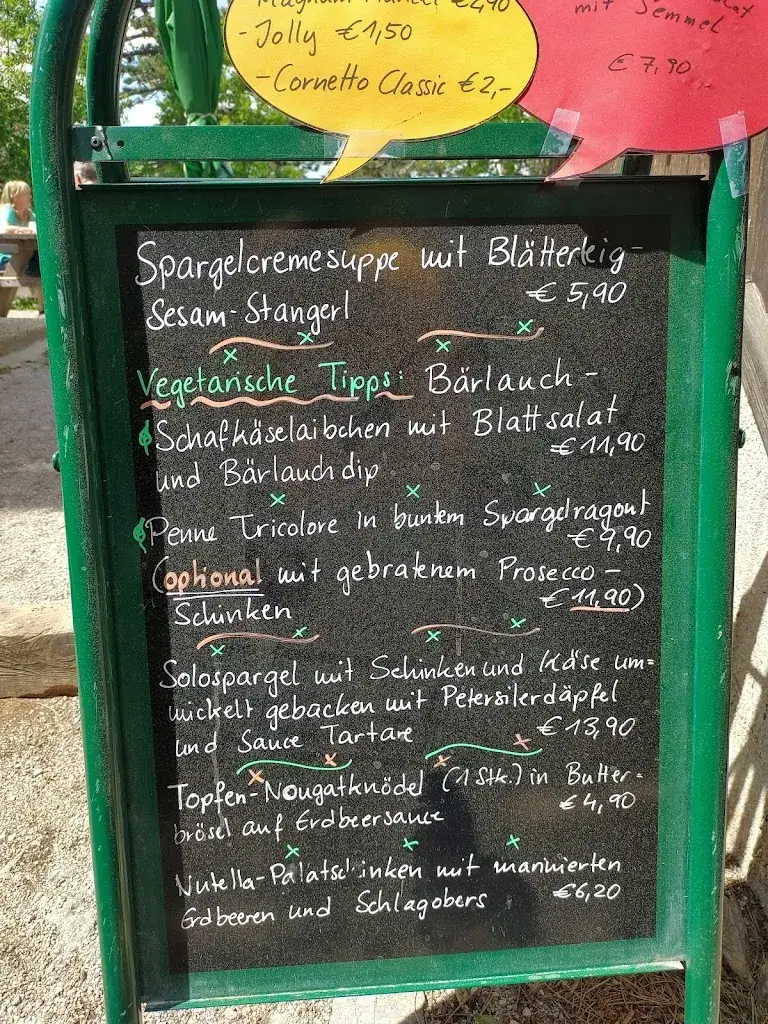 €2,90
- Jolly €1,50
- Cornetto Classic €2,-
mit Semmel
€ 7,90
Spargelcremesuppe mit Blätterteig-
Sesam-Stangerl € 5,90
Vegetarische Tipps: Bärlauch-
Schafkäselaibchen mit Blattsalat
und Bärlauchdip € 11,90
Penne Tricolore in buntem Spargelragout
€ 9,90
(optional mit gebratenem Prosecco-
Schinken € 11,90)
Solospargel mit Schinken und Käse um=
wickelt gebacken mit Petersilerdäpfel
und Sauce Tartare € 13,90
Topfen-Nougatknödel (1 Stk.) in Butter=
brösel auf Erdbeersauce € 4,90
Nutella-Palatschinken mit marinierten
Erdbeeren und Schlagobers €6,20